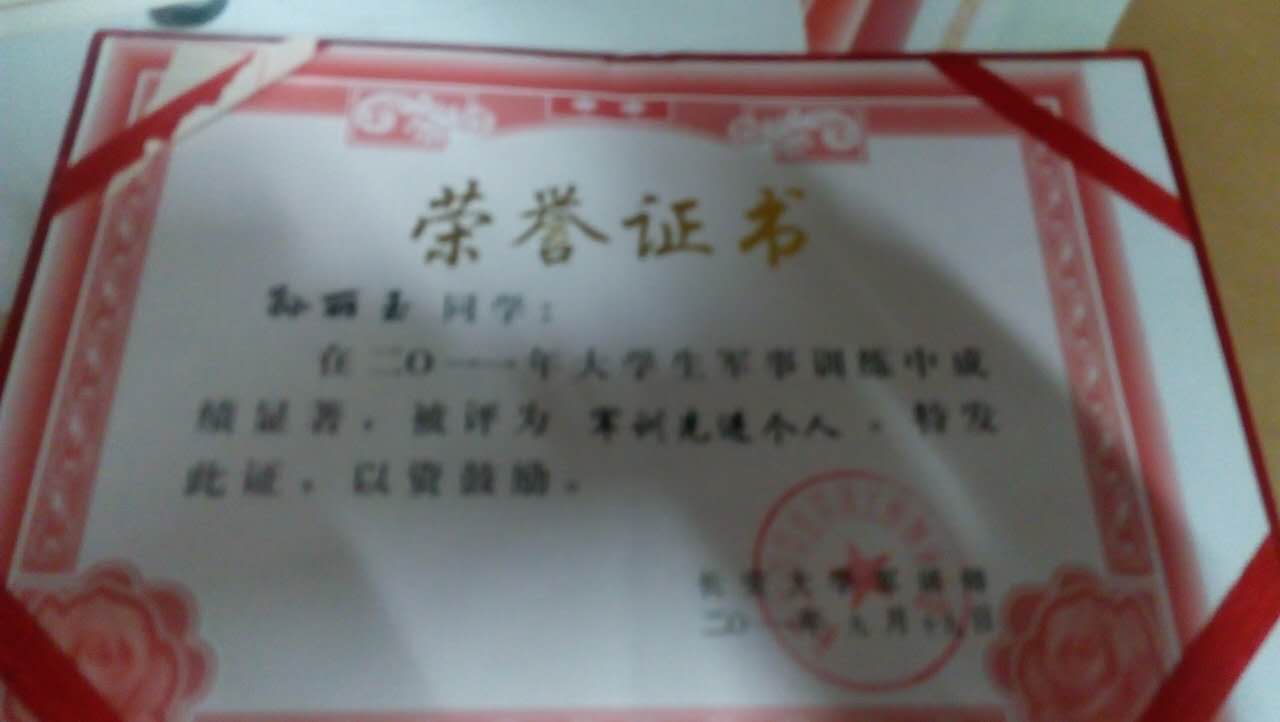 荣誉证书
孙丽玉同学：
在二〇一一年大学生军事训练中成
绩显著，被评为 军训先进个人，特发
此证，以资鼓励。
长安大学
二〇一一年九月